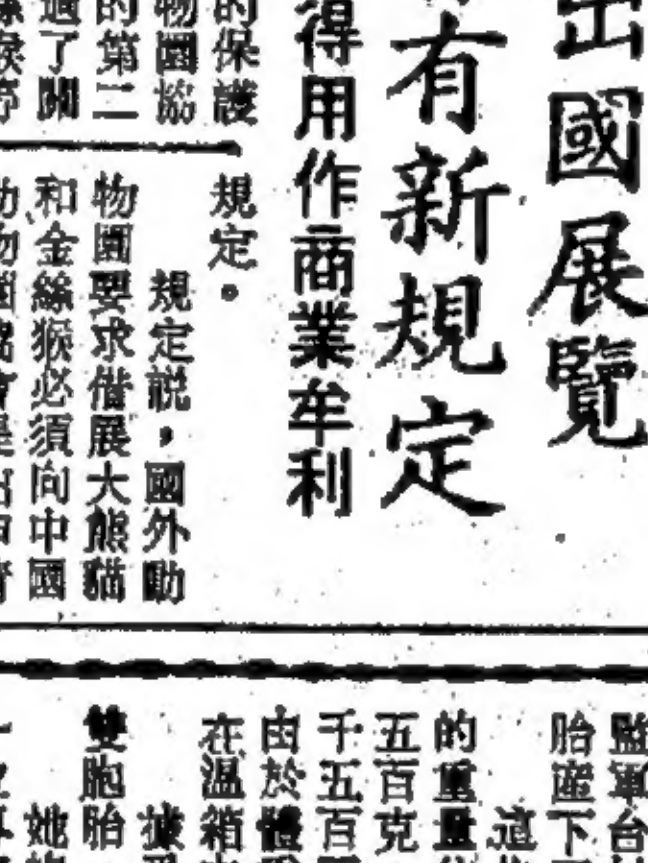 出國展覽
有新規定
得用作商業牟利
的保護
物園協
的第二
過了關
規定。
規定說，國外動
物園要求借展大熊貓
和金絲猴必須向中國
監軍台
胎產下
這
的重量
五百克
千五百
由於體
在溫箱
據
雙胞胎
她